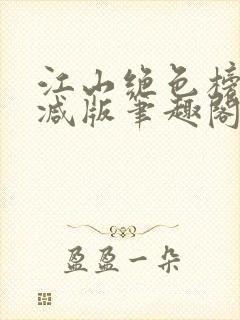 江山绝色榜
减版笔趣阁
盈盈一朵